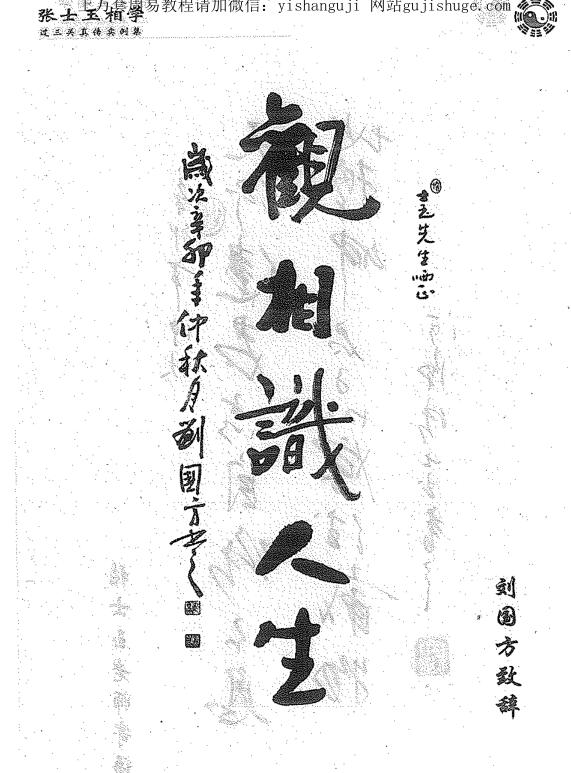 上万套周易教程请加微信：yishanguji 网站gujishuge.com
张士玉相学
过三关真传实例集
士玉先生哂正
觀相識人生
歲次辛卯年仲秋月劉国方书
刘国方致辞